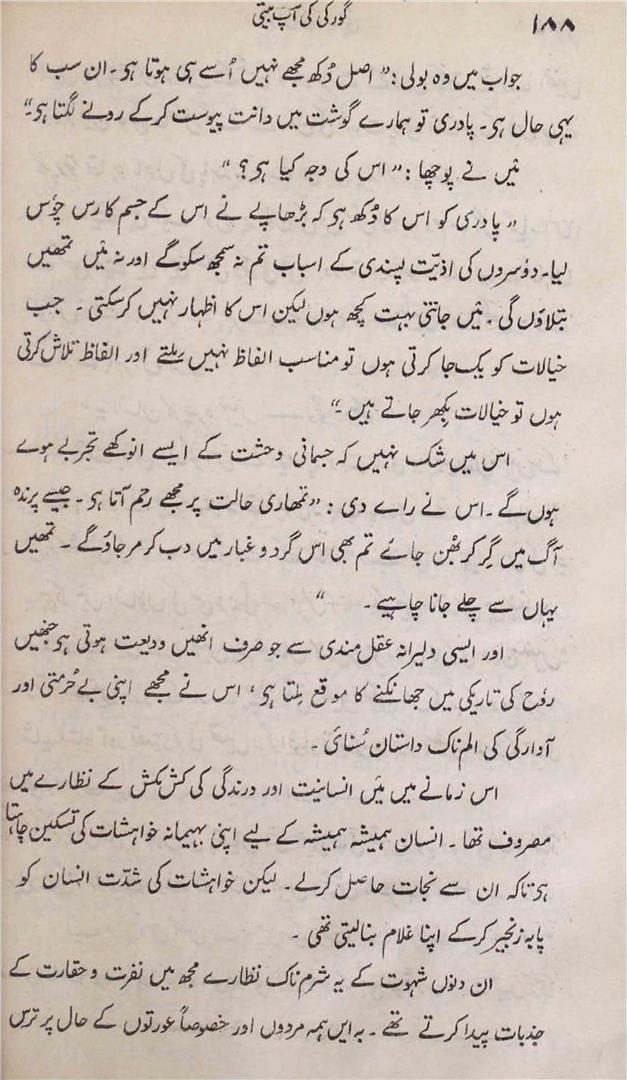 ۱۸۸
گورکی کی آپ بیتی
جواب میں وہ بولی : " اصل دُکھ مجھے نہیں اُسے ہی ہوتا ہر ۔ ان سب کا
یہی حال ہر ۔ پادری تو ہمارے گوشت میں دانت پیوست کرکے رونے لگتا ہر "
مَیں نے پوچھا : " اس کی وجہ کیا ہر ؟ "
" پادری کو اس کا دُکھ ہر کہ بڑھاپے نے اس کے جسم کا رس چوٗس
لیا۔ دوٗسروں کی اذیّت پسندی کے اسباب تم نہ سمجھ سکوگے اور نہ مَیں تمھیں
بتلاؤں گی ۔ مَیں جانتی بہت کچھ ہوں لیکن اس کا اظہار نہیں کرسکتی ۔ جب
خیالات کو یک جا کرتی ہوں تو مناسب الفاظ نہیں مِلتے اور الفاظ تلاش کرتی
ہوں تو خیالات بکھر جاتے ہیں ۔"
اس میں شک نہیں کہ جسمانی وحشت کے ایسے انوکھے تجربے ہوے
ہوں گے ۔ اس نے راے دی : " تمھاری حالت پر مجھے رحم آتا ہر ۔ جیسے پرندہ
آگ میں گِر کر بھُن جائے تم بھی اس گرد و غبار میں دب کر مرجاؤگے ۔ تمھیں
یہاں سے چلے جانا چاہیے ۔ "
اور ایسی دلیرانہ عقل مندی سے جو صرف انھیں ودیعت ہوتی ہر جنھیں
روٗح کی تاریکی میں جھانکنے کا موقع مِلتا ہر ، اس نے مجھے اپنی بے حُرمتی اور
آوارگی کی الم ناک داستان سُنائی ۔
اس زمانے میں مَیں انسانیت اور درندگی کی کش مکش کے نظارے میں
مصروف تھا ۔ انسان ہمیشہ ہمیشہ کے لیے اپنی بہیمانہ خواہشات کی تسکین چاہتا
ہر تاکہ ان سے نجات حاصل کرلے ۔ لیکن خواہشات کی شدّت انسان کو
پابہ زنجیر کرکے اپنا غلام بنالیتی تھی ۔
ان دنوں شہوت کے یہ شرم ناک نظارے مجھ میں نفرت و حقارت کے
جذبات پیدا کرتے تھے ۔ بہ ایں ہمہ مردوں اور خصوصاً عورتوں کے حال پر ترس